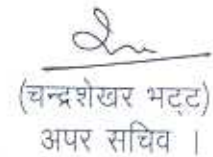 (चन्द्रशेखर भट्ट)
अपर सचिव ।